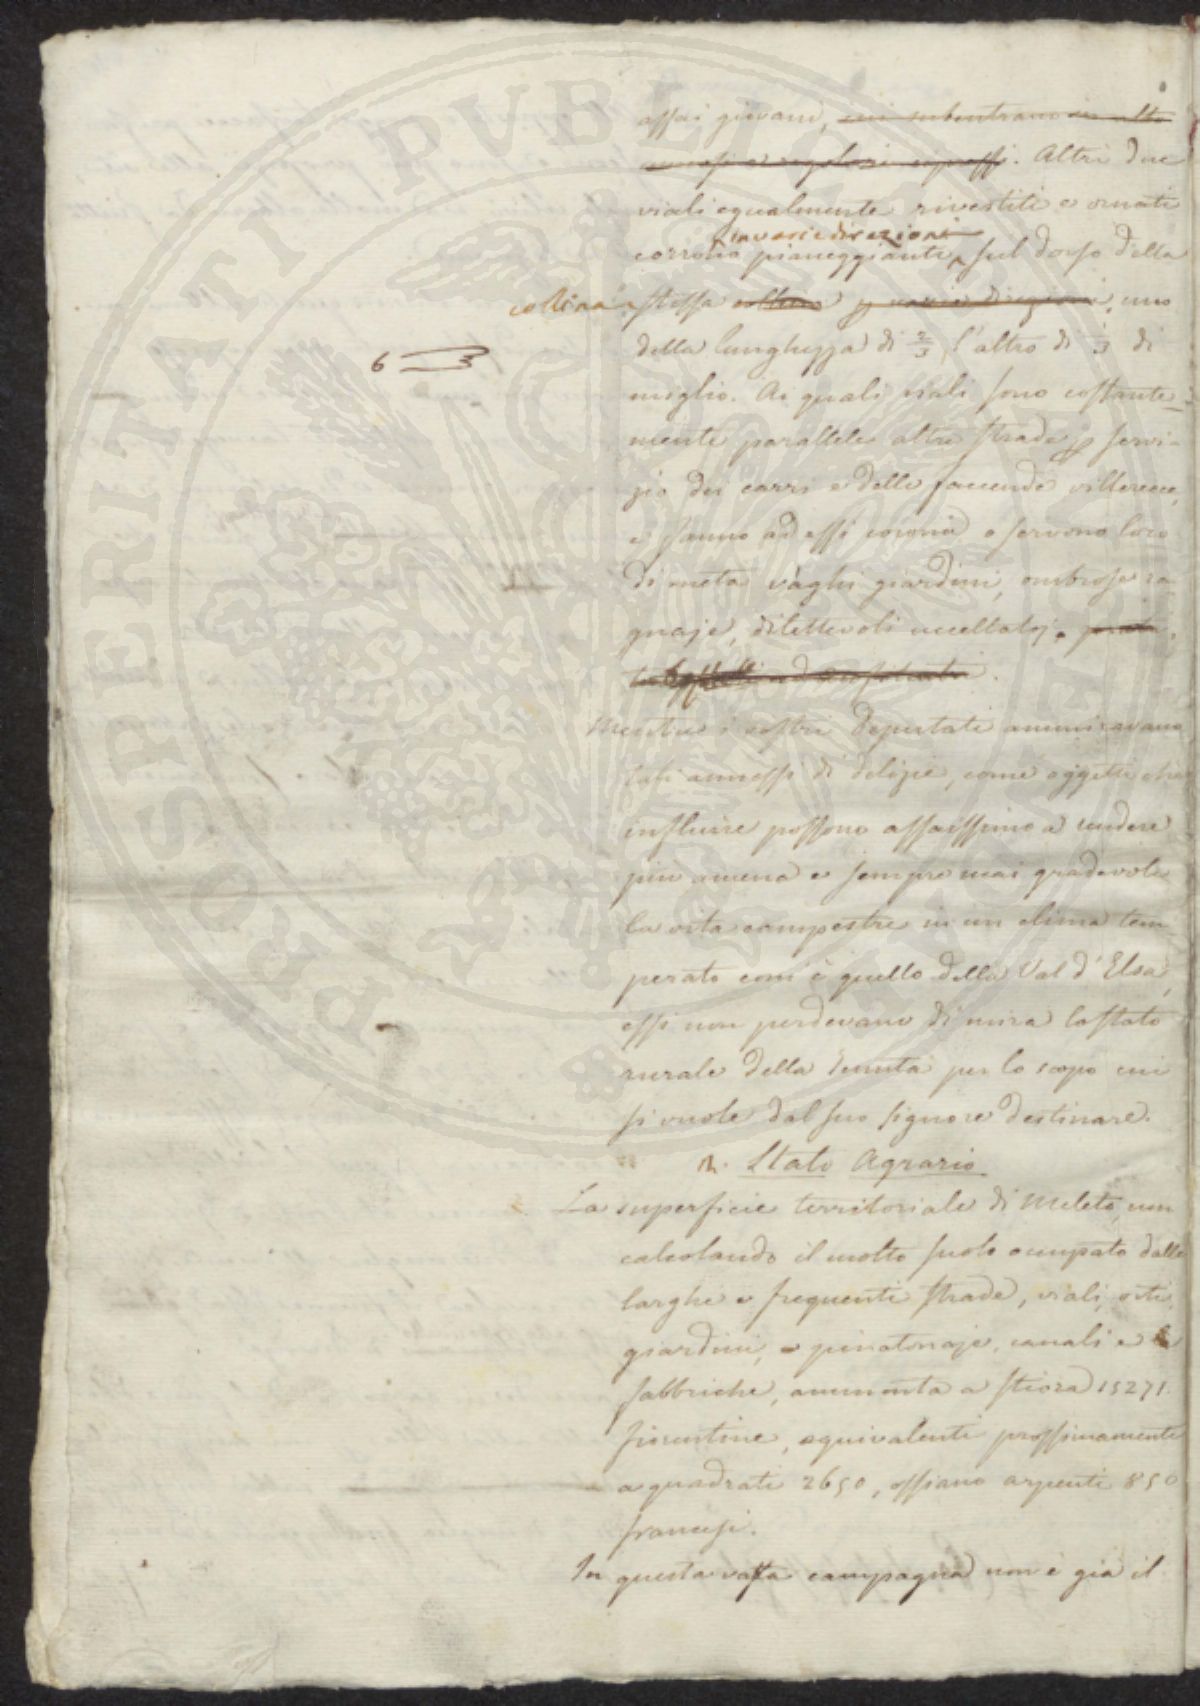 assai giovani,
. Altri due
viali egualmente rivestiti e ornati
in varie direzioni
corrono pianeggianti sul dorso della
collina stessa collina p varie direzioni, uno
della lunghezza di 2/3 l'altro di 1/3 di
6
miglio. Ai quali viali sono costante-
mente parallele altre strade p servi-
zio dei carri e delle faccende villerecce,
e fanno ad essi corona o servono loro
di meta vaghi giardini, ombrose ra
gnaje, dilettevoli uccellatoj.
Mentre i vostri Deputati ammiravano
tali annessi di delizie, come oggetti che
influire possono assaissimo a rendere
più amena e sempre mai gradevole
la vita campestre in un clima tem
perato com'è quello della Val d'Elsa,
essi non perdevano di mira lo stato
rurale della Tenuta per lo scopo cui
si vuole dal suo signore destinare.
2. Stato Agrario
La superficie territoriale di Meleto, non
calcolando il molto suolo occupato dalle
larghe e frequenti strade, viali, orti
giardini, e pinatonaje, canali e
fabbriche, ammonta a stiora 15271.
fiorentine, equivalenti prossimamente
a quadrati 2650, ossiano arpenti 850
francesi.
In questa vasta campagna non è già il